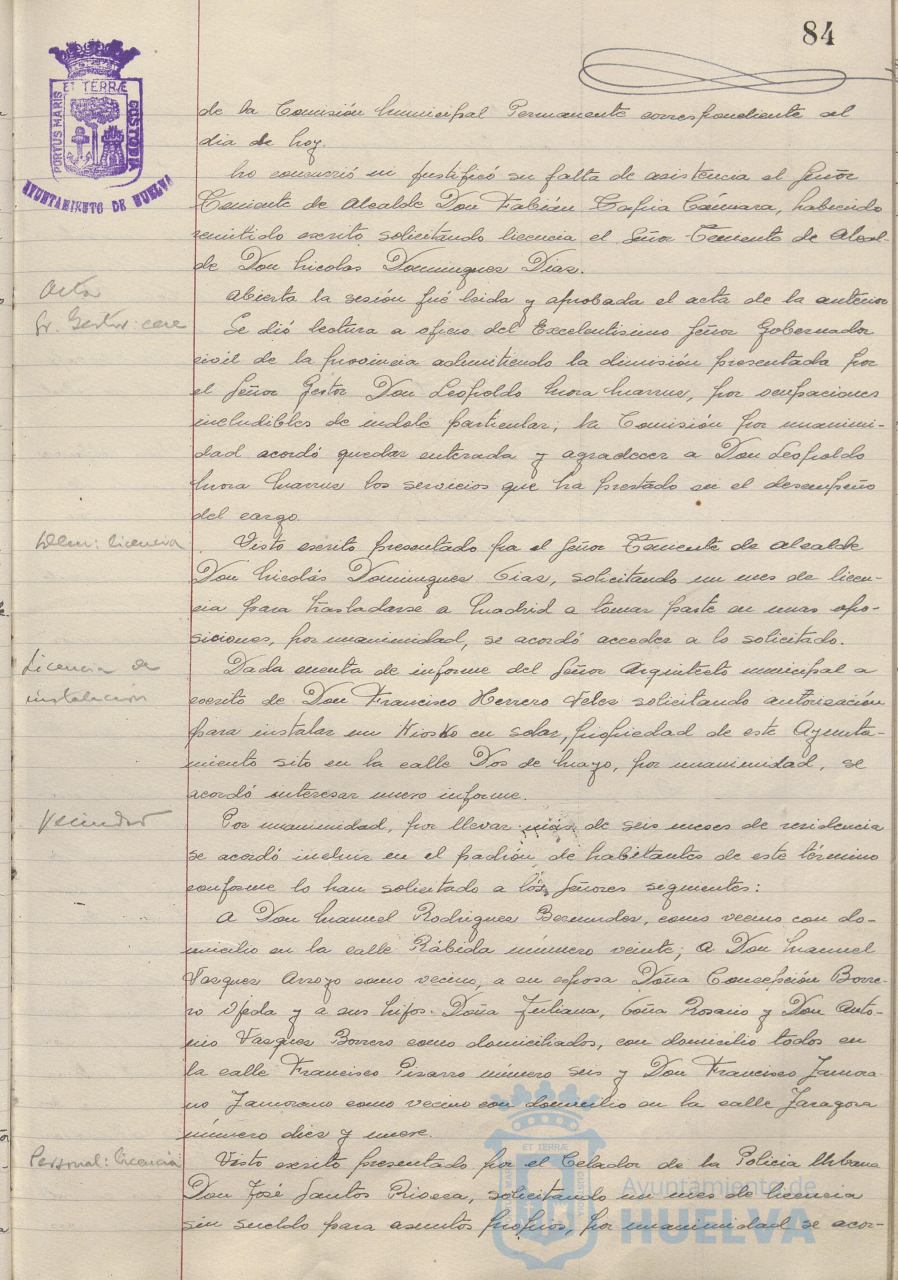 84
ET TERRÆ
PORTUS MARIS
CUSTODIA
AYUNTAMIENTO DE HUELVA
de la Comisión Municipal Permanente correspondiente al
dia de hoy.
No concurrió ni justificó su falta de asistencia el Señor
Teniente de Alcalde Don Fabián Tafira Cámara, habiendo
remitido escrito solicitando licencia el Señor Teniente de Alcal-
de Don Nicolas Domingues Dias.
Acta
Abierta la sesión fué leida y aprobada el acta de la anterior
Sr. Gestor: cese
Se dió lectura a oficio del Excelentisimo Señor Gobernador
civil de la provincia admitiendo la dimisión presentada por
el Señor Gestor Don Leopoldo Mora, por ocupaciones
includibles de indole particular; la Comisión por unanimi-
dad acordó quedar enterada y agradecer a Don Leopoldo
Mora los servicios que ha prestado en el desempeño
del cargo.
Idem: licencia
Visto escrito presentado por el Señor Teniente de alcalde
Don Nicolás Domingues Dias, solicitando un mes de licen-
cia para trasladarse a Madrid a tomar parte en unas opo-
siciones, por unanimidad, se acordó acceder a lo solicitado.
Licencia de
instalación
Dada cuenta de informe del Señor Arquitecto municipal a
escrito de Don Francisco Herrero Veles solicitando autorización
para instalar un Kiosko en solar, propiedad de este Ayunta-
miento sito en la calle Dos de Mayo, por unanimidad, se
acordó interesar nuevo informe.
Vecindad
Por unanimidad, por llevar más de seis meses de residencia
se acordó incluir en el padrón de habitantes de este término
conforme lo han solicitado a los Señores siguientes:
A Don Manuel Rodrigues Bermudes, como vecino con do-
micilio en la calle Rábida número veinte; a Don Manuel
Vasques Arroyo como vecino, a su esposa Doña Concepción Borre-
ro Ojeda y a sus hijos. Doña Juliana, Doña Rosario y Don Anto-
nio Vasques Borrero como domiciliados, con domicilio todos en
la calle Francisco Pisarro número seis y Don Francisco Zamora-
no Zamorano como vecino con domicilio en la calle Zaragoza
número dies y nueve.
Personal: licencia
Visto escrito presentado por el Celador de la Policia Urbana
Don José Santos Rioeca, solicitando un mes de licencia
sin sueldo para asuntos propios, por unanimidad se acor-
ET TERRÆ
Ayuntamiento de
HUELVA